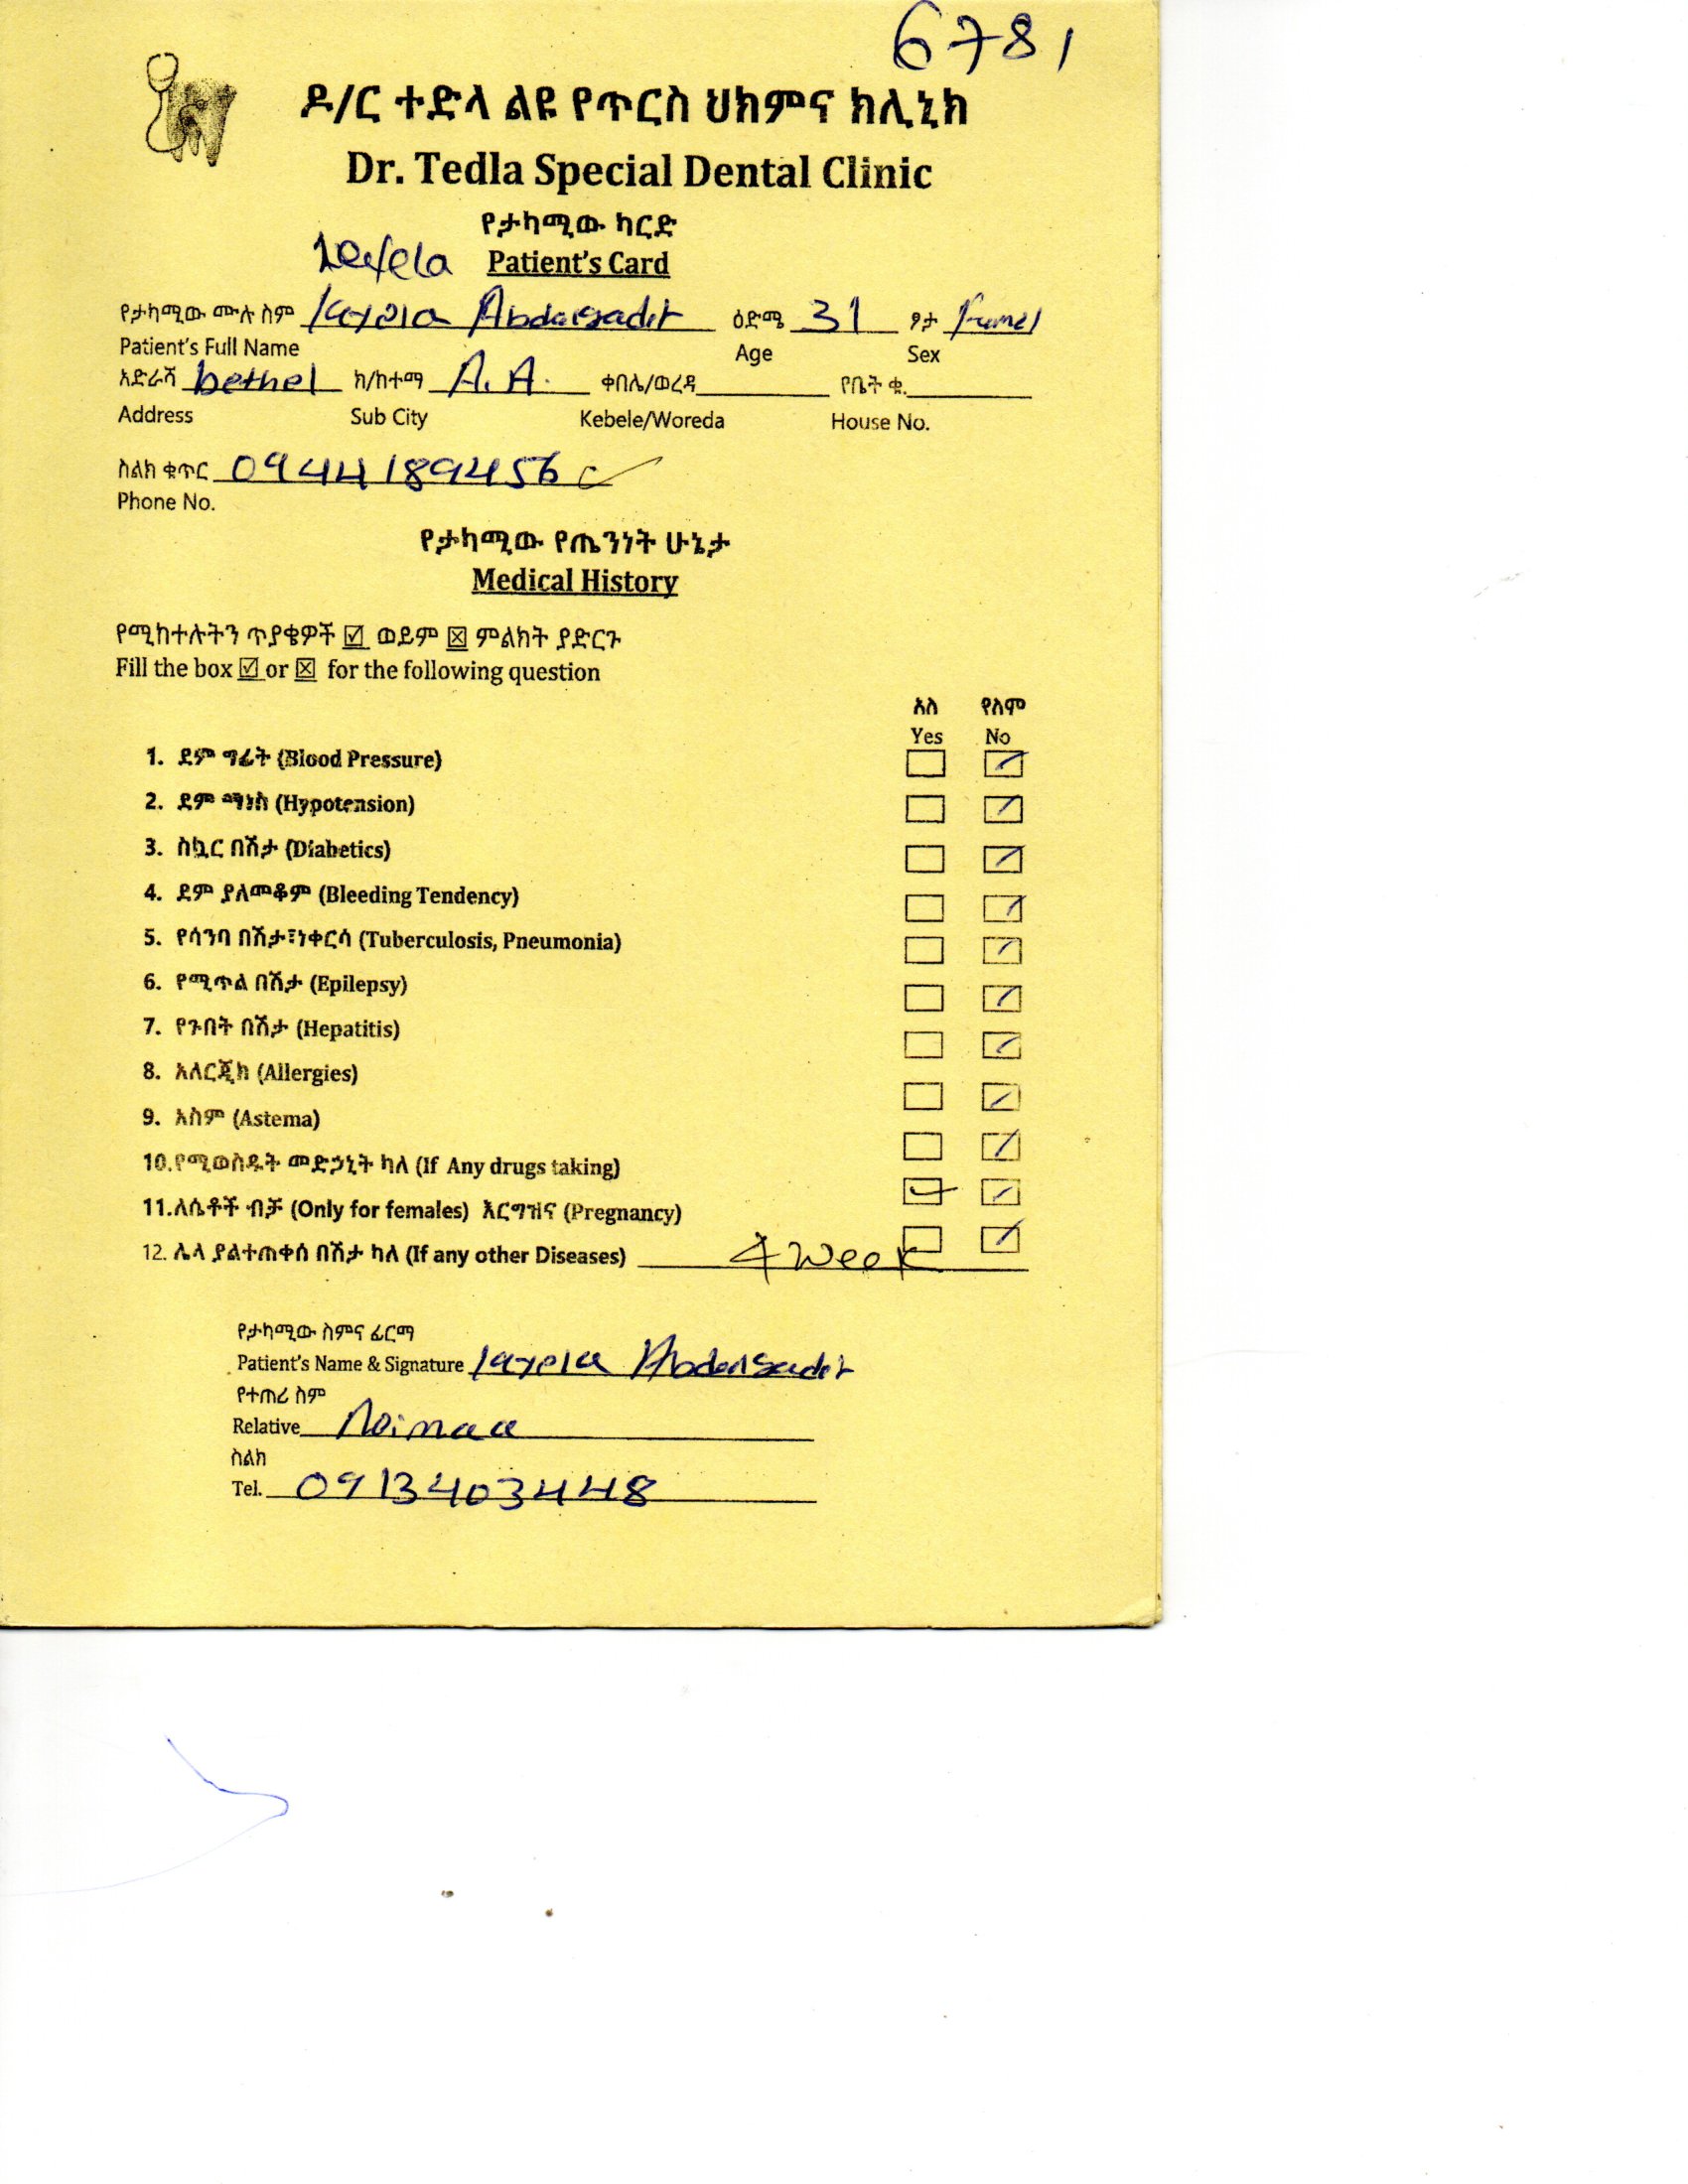 6781
ዶ/ር ተድላ ልዩ የጥርስ ህክምና ክሊኒክ
Dr. Tedla Special Dental Clinic
የታካሚው ካርድ
Patient's Card
የታካሚው ሙሉ ስም ዕድሜ 31 ፆታ
Patient's Full Name Age Sex
አድራሻ bethel ክ/ከተማ A.A. ቀበሌ/ወረዳ የቤት ቁ.
Address Sub City Kebele/Woreda House No.
ስልክ ቁጥር 0944189456
Phone No.
የታካሚው የጤንነት ሁኔታ
Medical History
የሚከተሉትን ጥያቄዎች ☑ ወይም ☒ ምልክት ያድርጉ
Fill the box ☑ or ☒ for the following question
አለ የለም
Yes No
1. ደም ግፊት (Blood Pressure)
2. ደም ማነስ (Hypotension)
3. ስኳር በሽታ (Diabetics)
4. ደም ያለመቆም (Bleeding Tendency)
5. የሳንባ በሽታ፣ነቀርሳ (Tuberculosis, Pneumonia)
6. የሚጥል በሽታ (Epilepsy)
7. የጉበት በሽታ (Hepatitis)
8. አለርጂክ (Allergies)
9. አስም (Astema)
10.የሚወስዱት መድኃኒት ካለ (If Any drugs taking)
11.ለሴቶች ብቻ (Only for females) እርግዝና (Pregnancy)
12. ሌላ ያልተጠቀሰ በሽታ ካለ (If any other Diseases) 4 week
የታካሚው ስምና ፊርማ
Patient's Name & Signature
የተጠሪ ስም
Relative
ስልክ
Tel. 0913403448